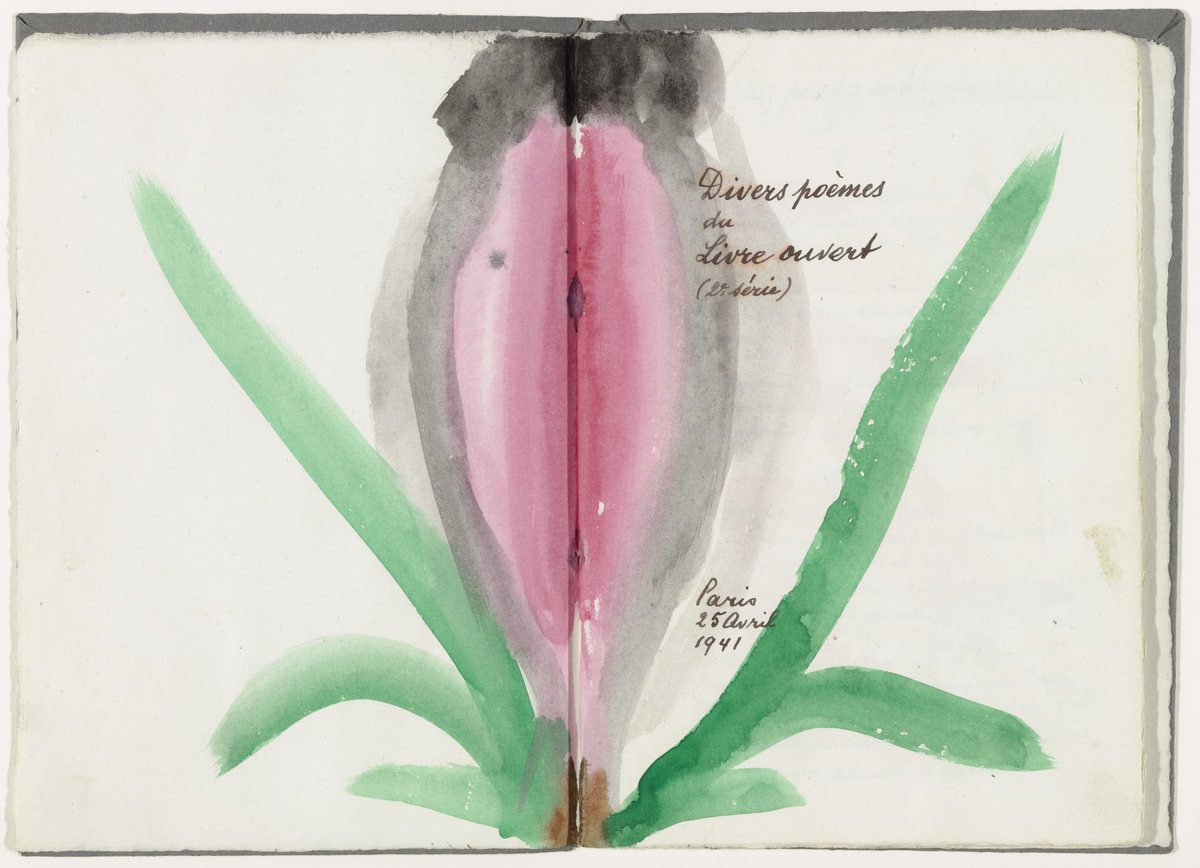 Divers poèmes
du
Livre ouvert
(2e série)
Paris
25 Avril
1941